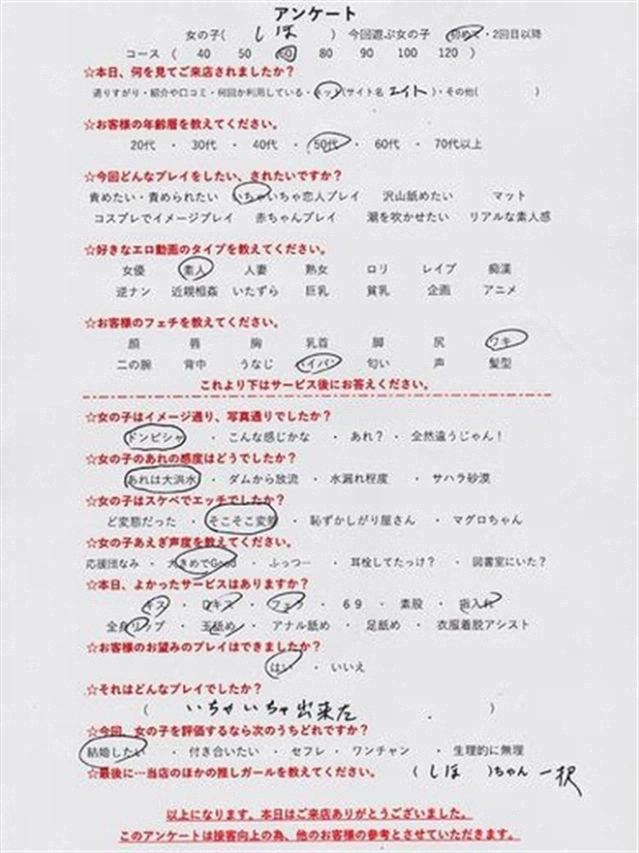 アンケート
女の子( しほ ) 今回遊ぶ女の子 初めて・2回目以降
コース ( 40 50 60 80 90 100 120 )
☆本日、何を見てご来店されましたか?
通りすがり・紹介や口コミ・何回か利用している・ネット(サイト名 エイト )・その他( )
☆お客様の年齢層を教えてください。
20代 ・ 30代 ・ 40代 ・ 50代 ・ 60代 ・ 70代以上
☆今回どんなプレイをしたい、されたいですか?
責めたい・責められたい いちゃいちゃ恋人プレイ 沢山舐めたい マット
コスプレでイメージプレイ 赤ちゃんプレイ 潮を吹かせたい リアルな素人感
☆好きなエロ動画のタイプを教えてください。
女優 素人 人妻 熟女 ロリ レイプ 痴漢
逆ナン 近親相姦 いたずら 巨乳 貧乳 企画 アニメ
☆お客様のフェチを教えてください。
顔 唇 胸 乳首 脚 尻 ワキ
二の腕 背中 うなじ パイパン 匂い 声 髪型
これより下はサービス後にお答えください。
☆女の子はイメージ通り、写真通りでしたか?
ドンピシャ ・ こんな感じかな ・ あれ? ・ 全然違うじゃん!
☆女の子のあれの感度はどうでしたか?
あれは大洪水 ・ ダムから放流 ・ 水漏れ程度 ・ サハラ砂漠
☆女の子はスケベでエッチでしたか?
ど変態だった ・ そこそこ変態 ・ 恥ずかしがり屋さん ・ マグロちゃん
☆女の子あえぎ声度を教えてください。
応援団なみ ・ 大きめでGood ・ ふっつー ・ 耳栓してたっけ? ・ 図書室にいた?
☆本日、よかったサービスはありますか?
キス ・ Dキス ・ フェラ ・ 69 ・ 素股 ・ 指入れ
全身リップ ・ 玉舐め ・ アナル舐め ・ 足舐め ・ 衣服着脱アシスト
☆お客様のお望みのプレイはできましたか?
はい ・ いいえ
☆それはどんなプレイでしたか?
( いちゃいちゃ出来た )
☆今回、女の子を評価するなら次のうちどれですか?
結婚したい ・ 付き合いたい ・ セフレ ・ ワンチャン ・ 生理的に無理
☆最後に…当店のほかの推しガールを教えてください。 ( しほ )ちゃん 一択
以上になります。本日はご来店ありがとうございました。
このアンケートは接客向上の為、他のお客様の参考とさせていただきます。